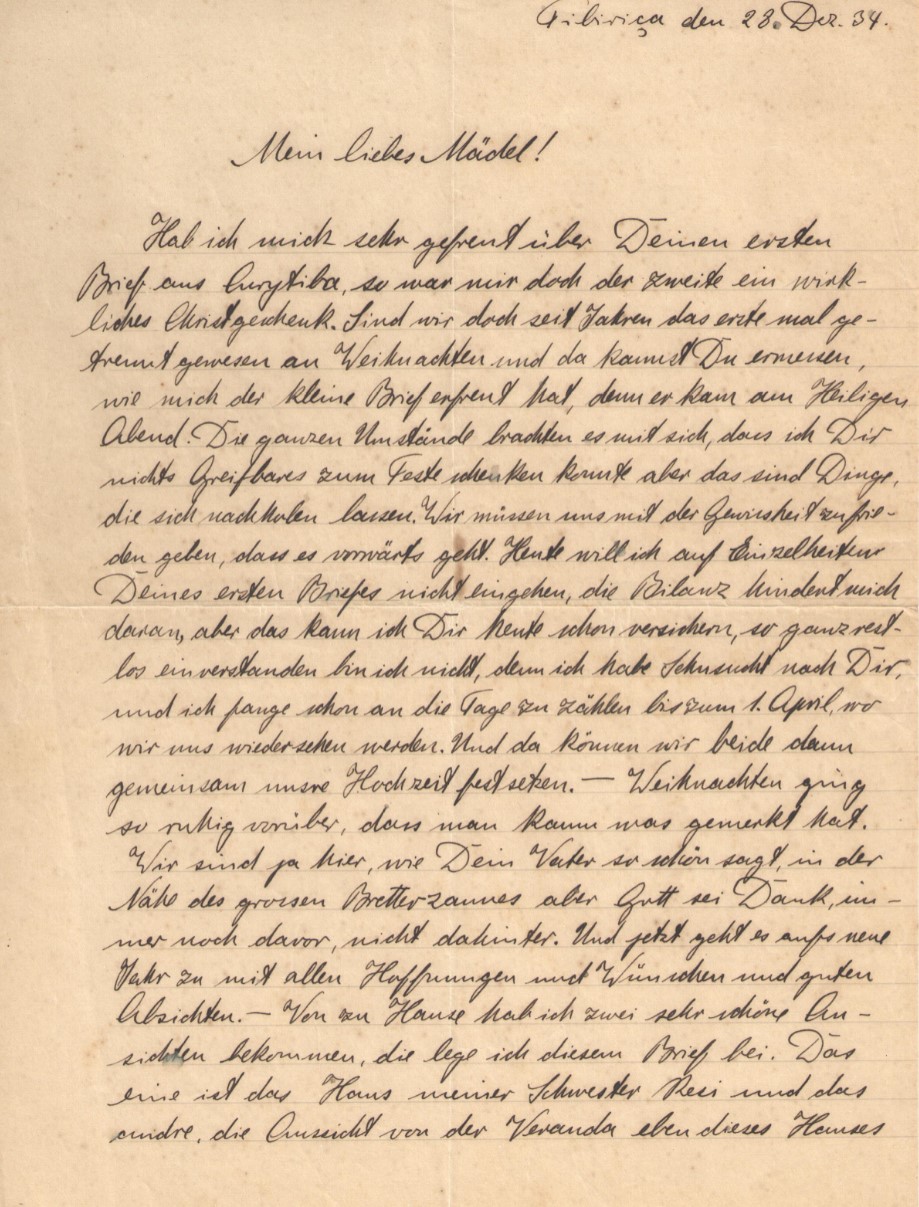 Tibiriça den 28. Dez. 34.
Mein liebes Mädel!
Hab ich mich sehr gefreut über Deinen ersten
Brief aus Curytiba, so war mir doch der zweite ein wirk-
liches Christgeschenk. Sind wir doch seit Jahren das erste mal ge-
trennt gewesen an Weihnachten und da kannst Du ermessen,
wie mich der kleine Brief erfreut hat, denn er kam am Heiligen
Abend. Die ganzen Umstände brachten es mit sich, dass ich Dir
nichts Greifbares zum Feste schenken konnte aber das sind Dinge,
die sich nachholen lassen. Wir müssen uns mit der Gewissheit zufrie-
den geben, dass es vorwärts geht. Heute will ich auf Einzelheiten
Deines ersten Briefes nicht eingehen, die Bilanz hindert mich
daran, aber das kann ich Dir heute schon versichern, so ganz rest-
los einverstanden bin ich nicht, denn ich habe Sehnsucht nach Dir,
und ich fange schon an die Tage zu zählen bis zum 1. April, wo
wir uns wiedersehen werden. Und da können wir beide dann
gemeinsam unsre Hochzeit festsetzen. — Weihnachten ging
so ruhig vorüber, dass man kaum was gemerkt hat.
Wir sind ja hier, wie Dein Vater so schön sagt, in der
Nähe des grossen Bretterzaunes aber Gott sei Dank, im-
mer noch davor, nicht dahinter. Und jetzt geht es aufs neue
Jahr zu mit allen Hoffnungen und Wünschen und guten
Absichten. — Von zu Hause hab ich zwei sehr schöne An-
sichten bekommen, die lege ich diesem Brief bei. Das
eine ist das Haus meiner Schwester Resi und das
andre, die Aussicht von der Veranda eben dieses Hauses